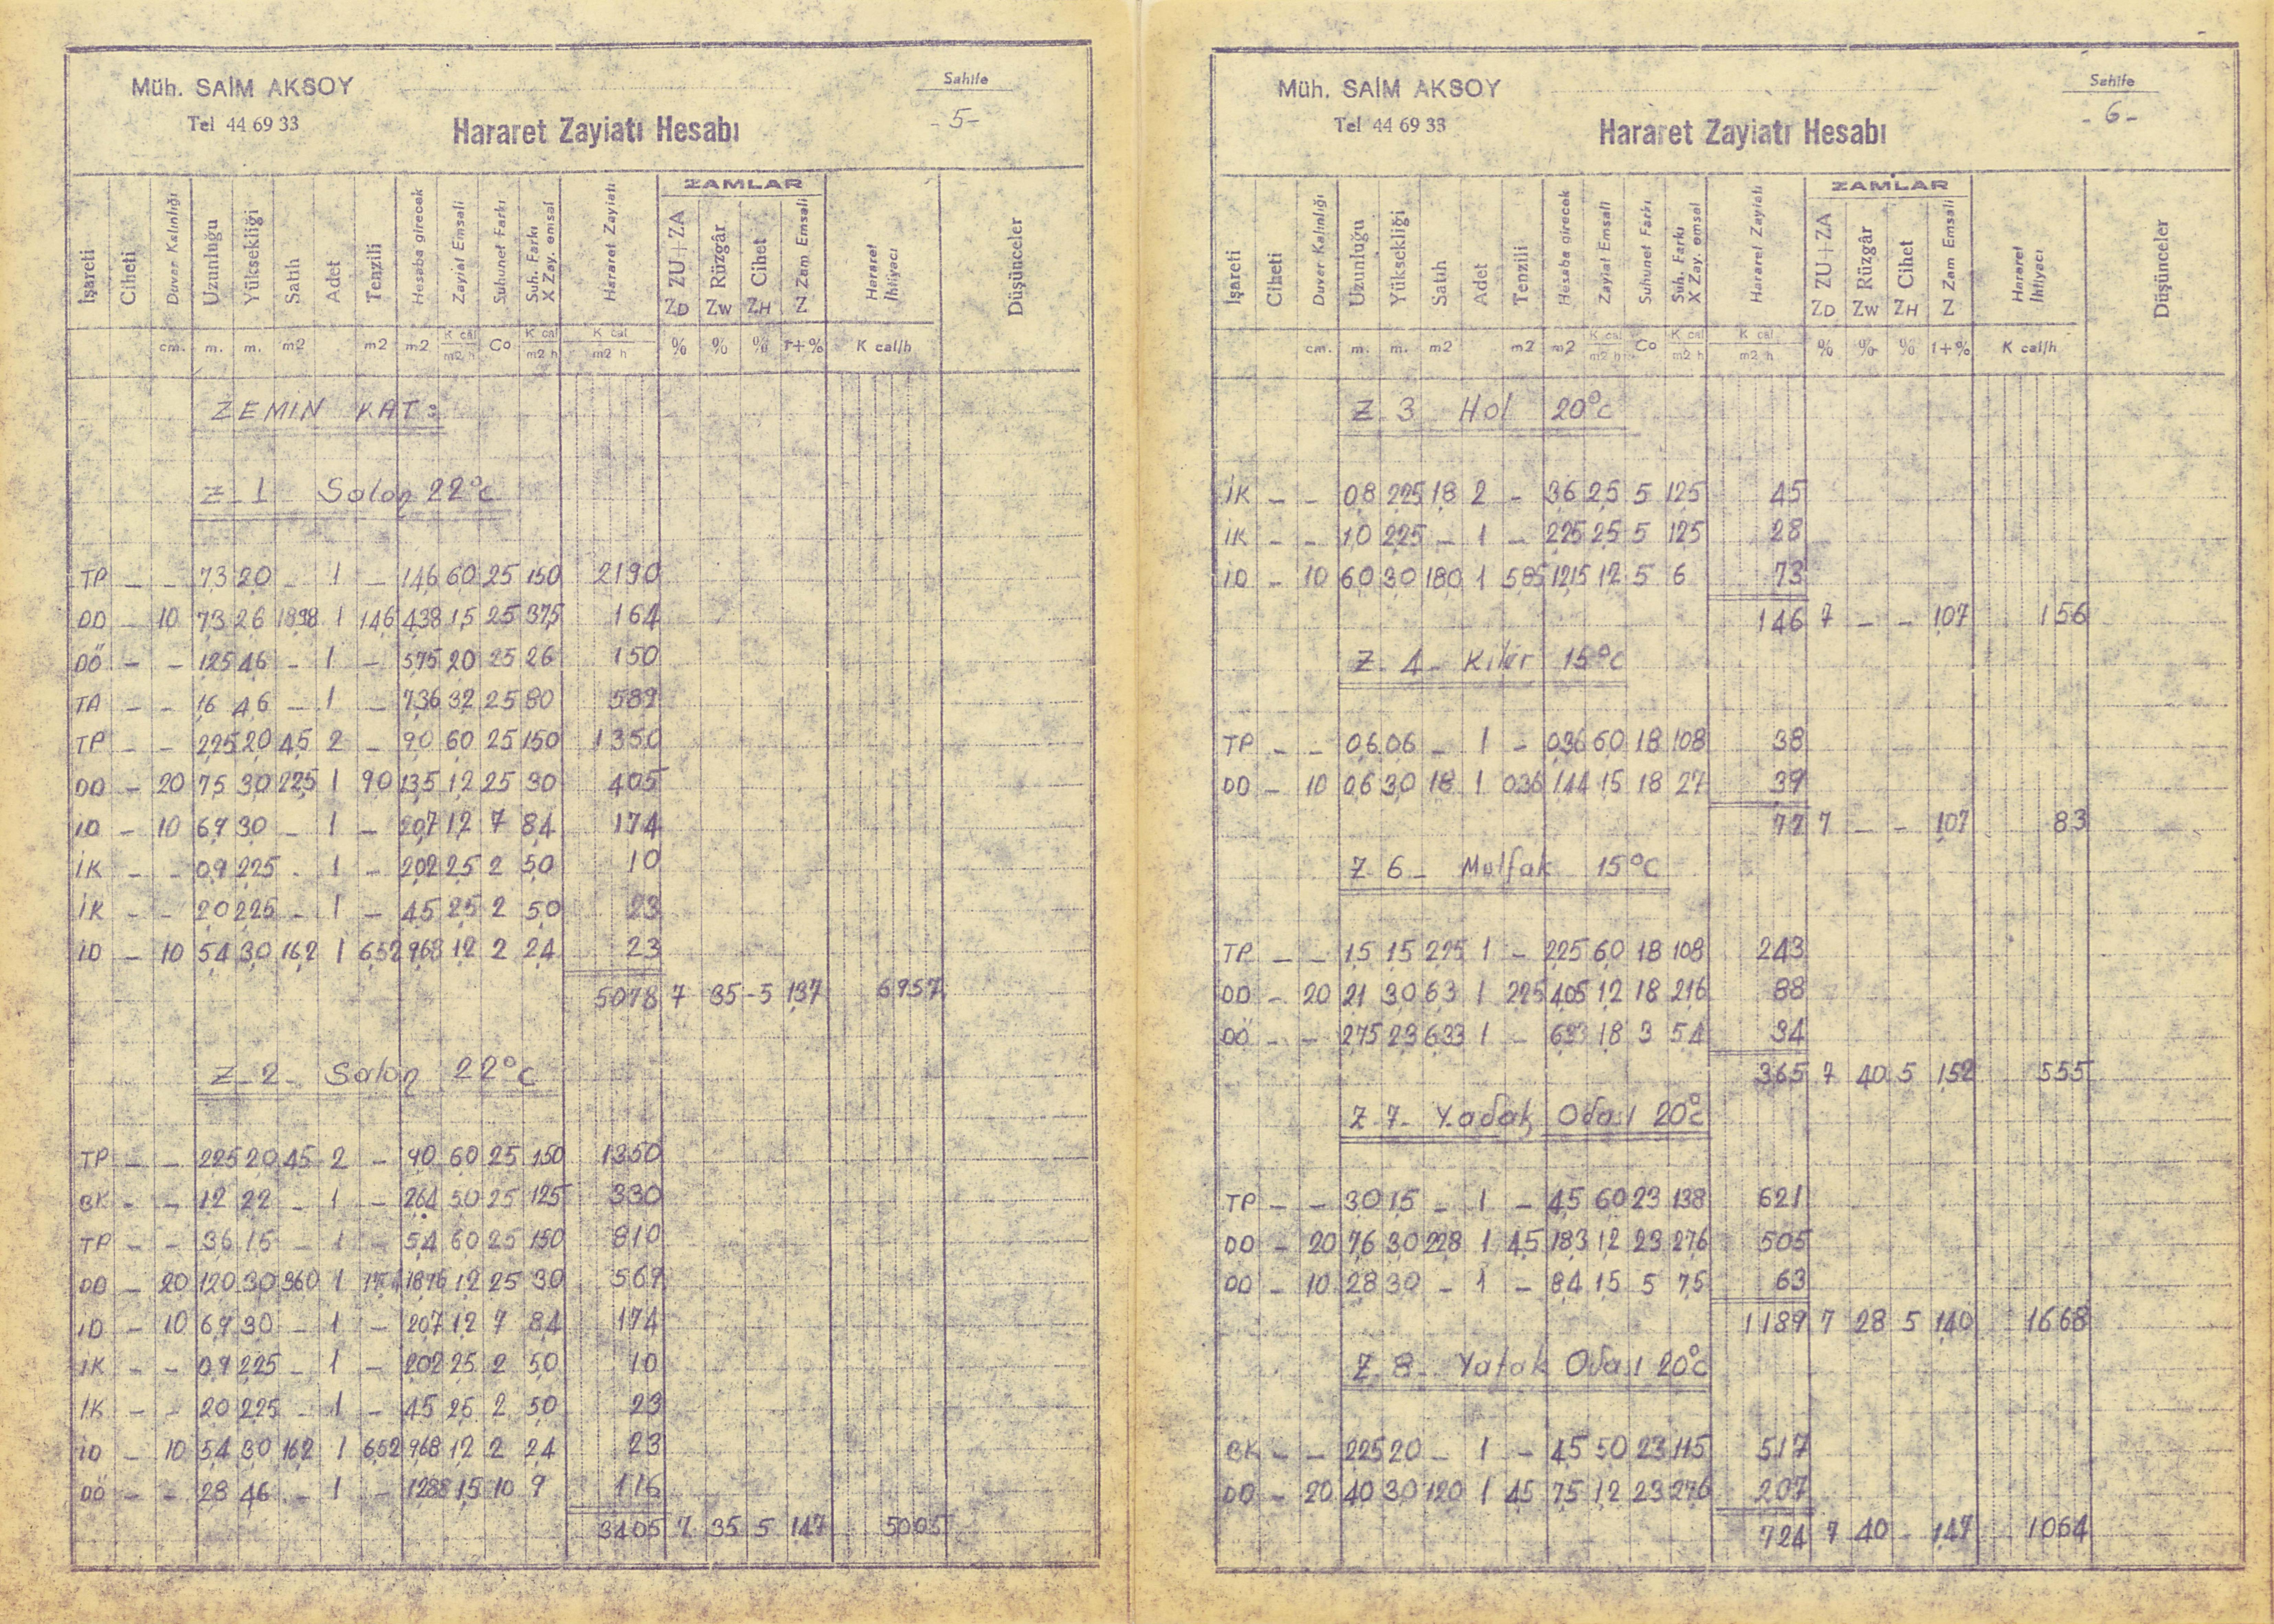 Müh. SAİM AKSOY
Tel 44 69 33
Hararet Zayiatı Hesabı
Sahife
- 5 -
ZAMLAR
İşareti Ciheti Duvar Kalınlığı Uzunluğu Yüksekliği Satıh Adet Tenzili Hesaba girecek Zayiat Emsali Suhunet Farkı Suh. Farkı X Zay. emsal Hararet Zayiatı ZU+ZA Rüzgâr Cihet Zam Emsali Hararet İhtiyacı Düşünceler
ZD Zw ZH Z
cm. m. m. m2 m2 m2 K cal/m2 h Co K cal/m2 h K cal/m2 h % % % 1+% K cal/h
ZEMIN KAT:
Z-1 Salon 22°c
TP - - 7,3 2,0 - 1 - 14,6 6,0 25 150 2190
DD - 10 7,3 2,6 18,98 1 14,6 4,38 1,5 25 37,5 164
DÖ - - 1,25 4,6 - 1 - 5,75 2,0 25 26 150
TA - - 1,6 4,6 - 1 - 7,36 3,2 25 80 589
TP - - 2,25 2,0 4,5 2 - 9,0 6,0 25 150 1350
DD - 20 7,5 3,0 22,5 1 9,0 13,5 1,2 25 30 405
ID - 10 6,9 3,0 - 1 - 20,7 1,2 7 8,4 174
İK - - 0,9 2,25 - 1 - 2,02 2,5 2 5,0 10
İK - - 2,0 2,25 - 1 - 4,5 2,5 2 5,0 23
ID - 10 5,4 3,0 16,2 1 6,52 9,68 1,2 2 2,4 23
5078 7 35 -5 1,37 6957
Z-2- Salon 22°c
TP - - 2,25 2,0 4,5 2 - 9,0 6,0 25 150 1350
BK - - 1,2 2,2 - 1 - 2,64 5,0 25 125 330
TP - - 3,6 1,5 - 1 - 5,4 6,0 25 150 810
DD - 20 12,0 3,0 36,0 1 18,76 1,2 25 30 569
İD - 10 6,9 3,0 - 1 - 20,7 1,2 7 8,4 174
IK - - 0,9 2,25 - 1 - 2,02 2,5 2 5,0 10
IK - - 2,0 2,25 - 1 - 4,5 2,5 2 5,0 23
İD - 10 5,4 3,0 16,2 1 6,52 9,68 1,2 2 2,4 23
DÖ - - 2,8 4,6 - 1 - 12,88 1,5 10 9 116
3405 7 35 5 1,47 5005
Müh. SAİM AKSOY
Tel 44 69 33
Hararet Zayiatı Hesabı
Sahife
- 6 -
ZAMLAR
İşareti Ciheti Duvar Kalınlığı Uzunluğu Yüksekliği Satıh Adet Tenzili Hesaba girecek Zayiat Emsali Suhunet Farkı Suh. Farkı X Zay. emsal Hararet Zayiatı ZU+ZA Rüzgâr Cihet Zam Emsali Hararet İhtiyacı Düşünceler
ZD Zw ZH Z
cm. m. m. m2 m2 m2 K cal/m2 h Co K cal/m2 h K cal/m2 h % % % 1+% K cal/h
Z 3 Hol 20°c
İK - - 0,8 2,25 1,8 2 - 3,6 2,5 5 12,5 45
İK - - 1,0 2,25 - 1 - 2,25 2,5 5 12,5 28
İD - 10 6,0 3,0 18,0 1 5,85 12,15 1,2 5 6 73
146 7 - - 1,07 156
Z-4- Kiler 15°c
TP - - 0,6 0,6 - 1 - 0,36 6,0 18 108 38
DD - 10 0,6 3,0 1,8 1 0,36 1,44 1,5 18 27 39
77 7 - - 1,07 83
Z 6 - Mutfak 15°C
TP - - 1,5 1,5 2,25 1 - 2,25 6,0 18 108 243
DD - 20 2,1 3,0 6,3 1 2,25 4,05 1,2 18 21,6 88
DÖ - - 2,75 2,3 6,33 1 - 6,33 1,8 3 5,4 34
365 7 40 5 1,52 555
Z-7- Yatak Odası 20°c
TP - - 3,0 1,5 - 1 - 4,5 6,0 23 138 621
DD - 20 7,6 3,0 22,8 1 4,5 18,3 1,2 23 27,6 505
DD - 10 2,8 3,0 - 1 - 8,4 1,5 5 7,5 63
1189 7 28 5 1,40 1668
Z-8- Yatak Odası 20°c
BK - - 2,25 2,0 - 1 - 4,5 5,0 23 115 517
DD - 20 4,0 3,0 12,0 1 4,5 7,5 1,2 23 27,6 207
724 7 40 - 1,47 1064